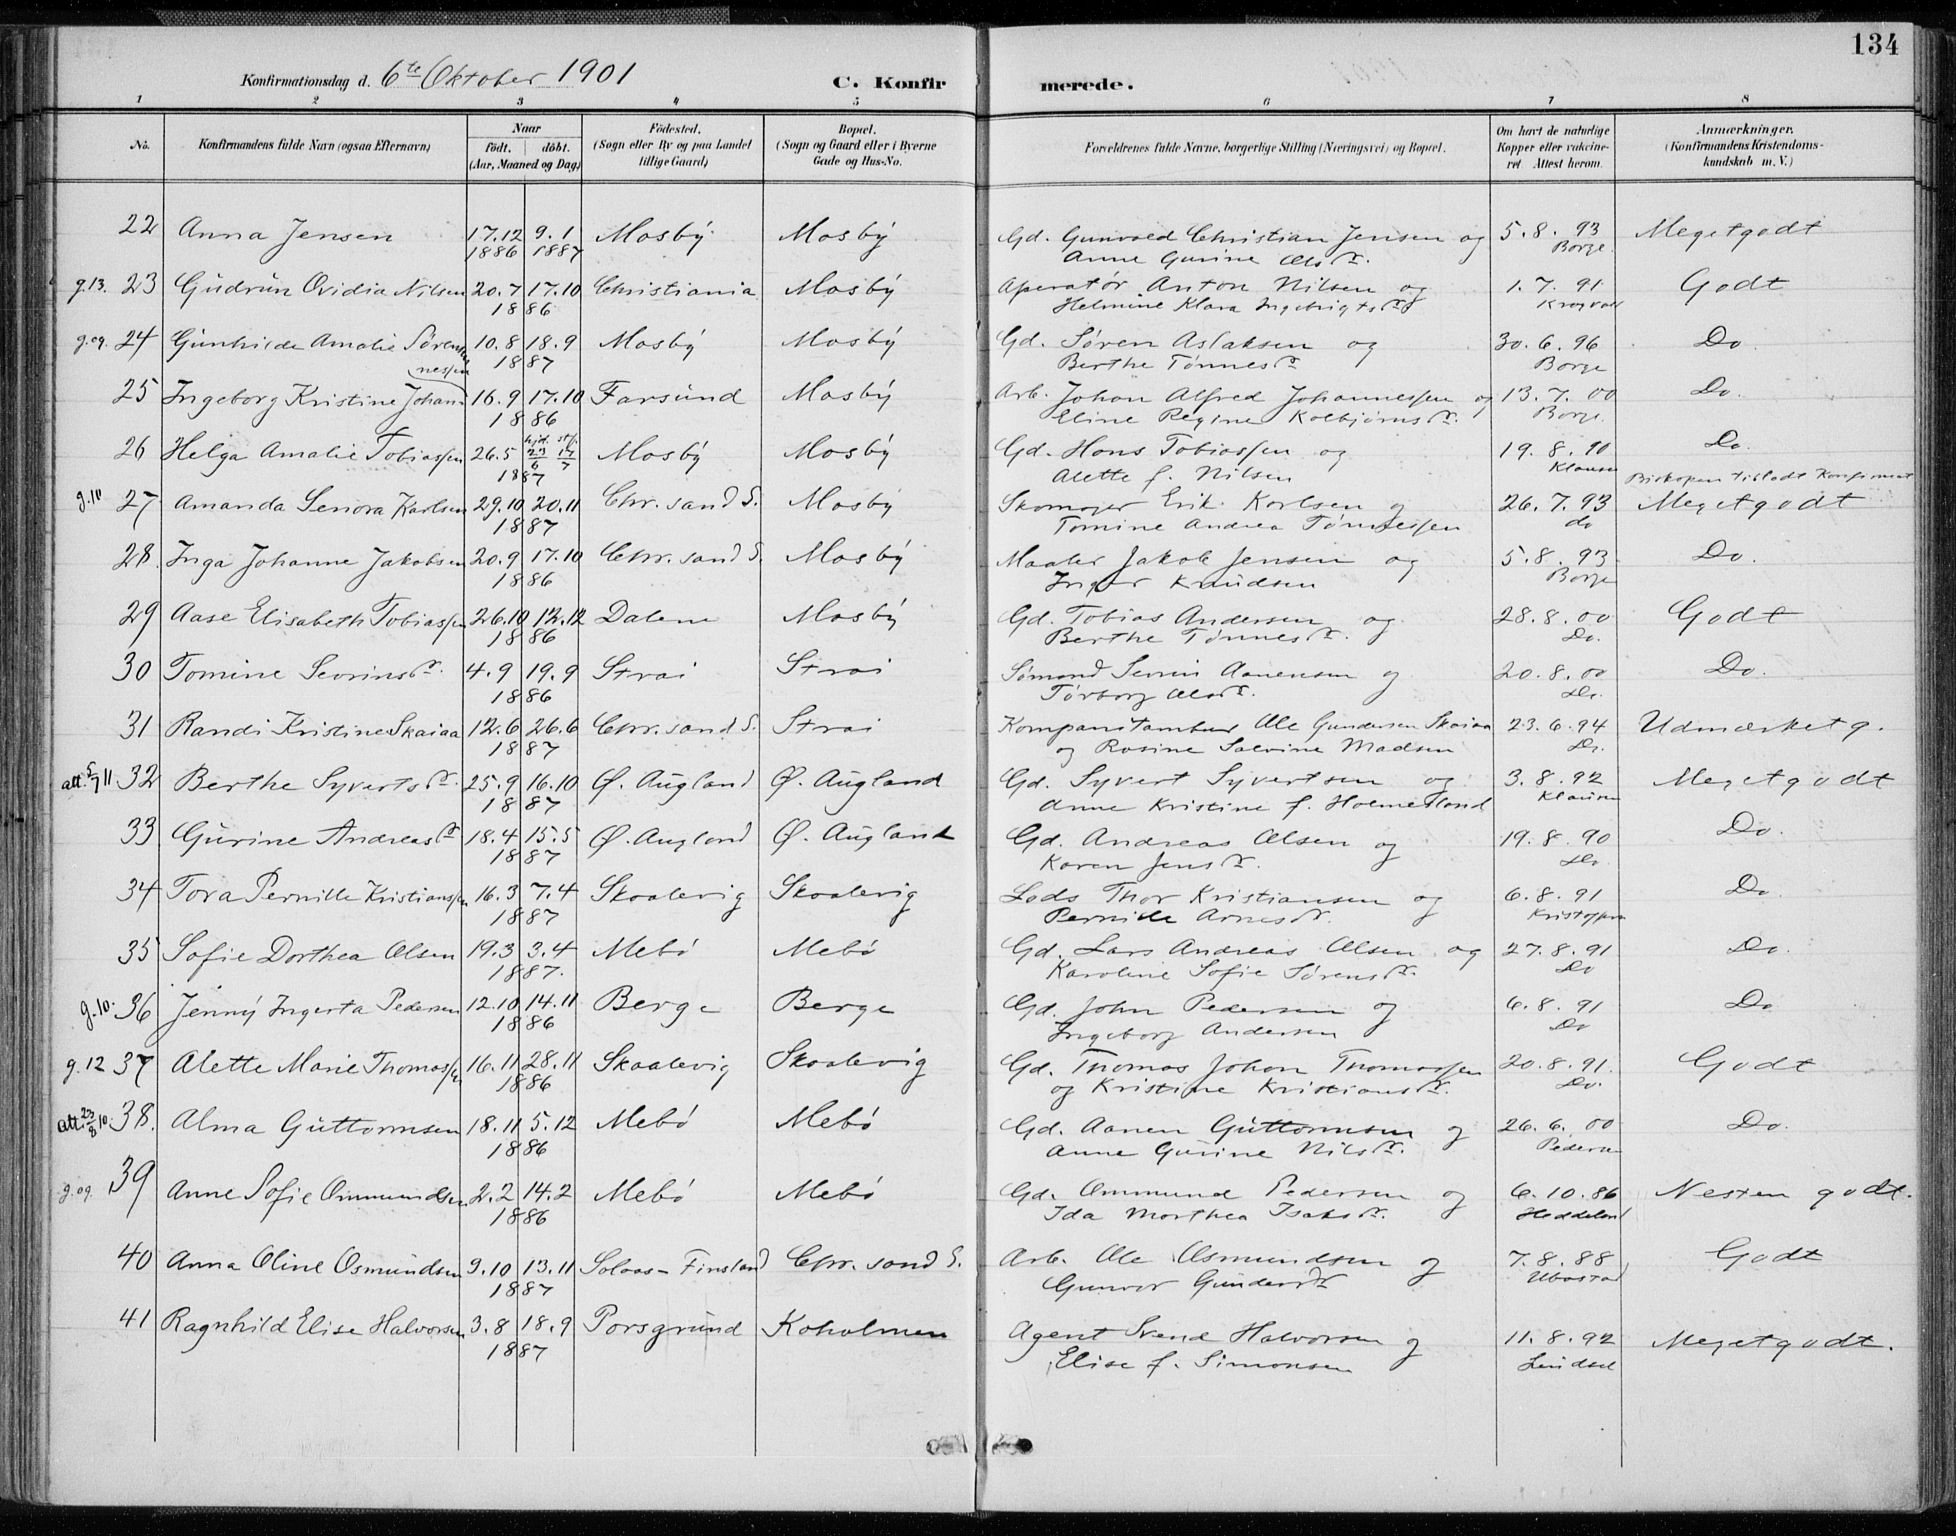 134
Konfirmationsdag d. 6te Oktober 1901
C. Konfirmerede.
1 2 3 4 5 6 7 8
No. Konfirmandens fulde Navn (ogsaa Efternavn) Naar födt. döbt. (Aar, Maaned og Dag) Födested. (Sogn eller By og paa Landet tillige Gaard) Bopæl. (Sogn og Gaard eller i Byerne Gade og Hus-No. Forældrenes fulde Navne, borgerlige Stilling (Næringsvei) og Bopæl. Om havt de naturlige Kopper eller vakcineret. Attest herom. Anmærkninger. (Konfirmandens Kristendomskundskab m. V.)
22 Anna Jensen 17.12 1886 9.1 1887 Mosby Mosby Gd. Gunvald Christian Jensen og 5.8.93 Megetgodt
Anne Gurine Olsd. Borge
g.13. 23 Gudrun Ovidia Nilsen 20.7 17.10 1886 Christiania Mosby Operatør Anton Nilsen og 1.7.91 Godt
Helmine Klara Ingebrigtsd.
g.09. 24 Gunhilde Amalie Sørensen 10.8 18.9 1887 Mosby Mosby Gd. Søren Aslaksen og 30.6.96 Do
Berthe Tønnesd. Borge
25 Ingeborg Kristine Johannessen 16.9 17.10 1886 Farsund Mosby Arb. Johan Alfred Johannessen og 13.7.00 Do.
Eline Regine Kolbjørnsd. Borge.
26 Helga Amalie Tobiassen 26.5 hjd. 23/6 stf. 17/7 1887 Mosby Mosby Gd. Hans Tobiassen og 19.8.90 Do.
Alette f. Nilsen Klausen Biskopen tilladt Konfirmert
g.10 27 Amanda Senora Karlsen 29.10 20.11 1887 Chr.sand S. Mosby Skomager Erik Karlsen og 26.7.93 Megetgodt
Tomine Andrea Tønnessen do
28. Inga Johanne Jakobsen 20.9 17.10 1886 Chr.sand S. Mosby Maaler Jakob Jensen og 5.8.93 Do.
Inger Knudsen Borge
29 Aase Elisabeth Tobiassen 26.10 12.12 1886 Dalene Mosby Gd. Tobias Andersen og 28.8.00 Godt
Berthe Tønnesd. Do.
30 Tomine Sevrinsd. 4.9 19.9 1886 Strai Strai Sømand Sevrin Aanensen og 20.8.00 Do.
Torborg Olsd. Do.
31 Randi Kristine Skaiaa 12.6 26.6 1887 Chr.sand S. Strai Kompanitambur Ole Gundersen Skaiaa 23.6.94 Udmærket g.
og Rosine Salvine Madsen Do.
att. 5/7 11 32 Berthe Syvertsd. 25.9 16.10 1887 Ø. Augland Ø. Augland Gd. Syvert Syvertsen og 3.8.92 Megetgodt
Anne Kristine f. Holmesland Klausen
33 Gurine Andreasd. 18.4 15.5 1887 Ø. Augland Ø. Augland Gd. Andreas Olsen og 19.8.90 Do.
Karen Jensd. Do.
34 Tora Pernille Kristianssen 16.3 7.4 1887 Skaalevig Skaalevig Lods Thor Kristiansen og 6.8.91 Do
Pernille Arnesd.
35 Sofie Dorthea Olsen 19.3 3.4 1887. Mebø Mebø Gd. Lars Andreas Olsen og 27.8.91 Do.
Karoline Sofie Sørensd. Do
g.10. 36 Jenny Ingerta Pedersen 12.10 14.11 1886 Berge Berge Gd. John Pedersen og 6.8.91 Do
Ingeborg Andersen Do
g.12 37 Alette Marie Thomassen 16.11 28.11 1886 Skaalevig Skaalevig Gd. Thomas Johan Thomassen 20.8.91. Godt
og Kristine Kristiansd. Do.
att. 23/8 10. 38. Alma Guttormsen 18.11 5.12 1886 Mebø Mebø Gd. Aanen Guttormsen og 26.6.00 Do.
Anne Gurine Nilsd. Pedersen
g.09. 39 Anne Sofie Ommundsen 2.2 14.2 1886 Mebø Mebø Gd. Ommund Pedersen og 6.10.86 Nesten godt.
Ida Marthea Isaksd. Heddeland
40 Anna Oline Osmundsen 9.10 13.11 1887 Solaas - Finsland Chr.sand S. Arb. Ole Osmundsen og 7.8.88 Godt
Gunvor Gundersd. Ubostad
41 Ragnhild Elise Halvorsen 3.8 18.9 1887 Porsgrund Koholmen Agent Svend Halvorsen og 11.8.92 Megetgodt.
Elise f. Simonsen